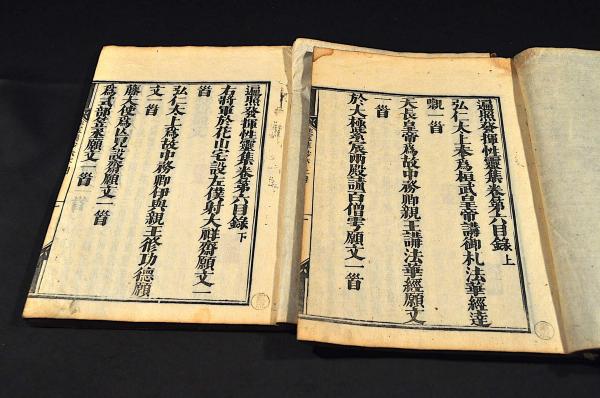 遍照發揮性靈集卷第六目錄 上
弘仁太上奉爲桓武皇帝講御札法華經達
嚫一首
天長皇帝爲故中務卿親王講法華經願文
一首
於大極紫宸兩殿請百僧雩願文一首
遍照發揮性靈集卷第六目錄 下
右將軍於花山宅設左僕射大祥齋願文一
首
弘仁太上爲故中務卿伊與親王修功德願
文一首
藤大使爲亡兒設齋願文一首
爲式部笠丞願文一首